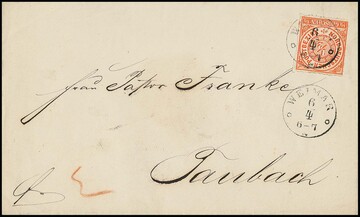 WEIMAR
6
4
6-7
Frau Pastor Franke
Taubach
fr.